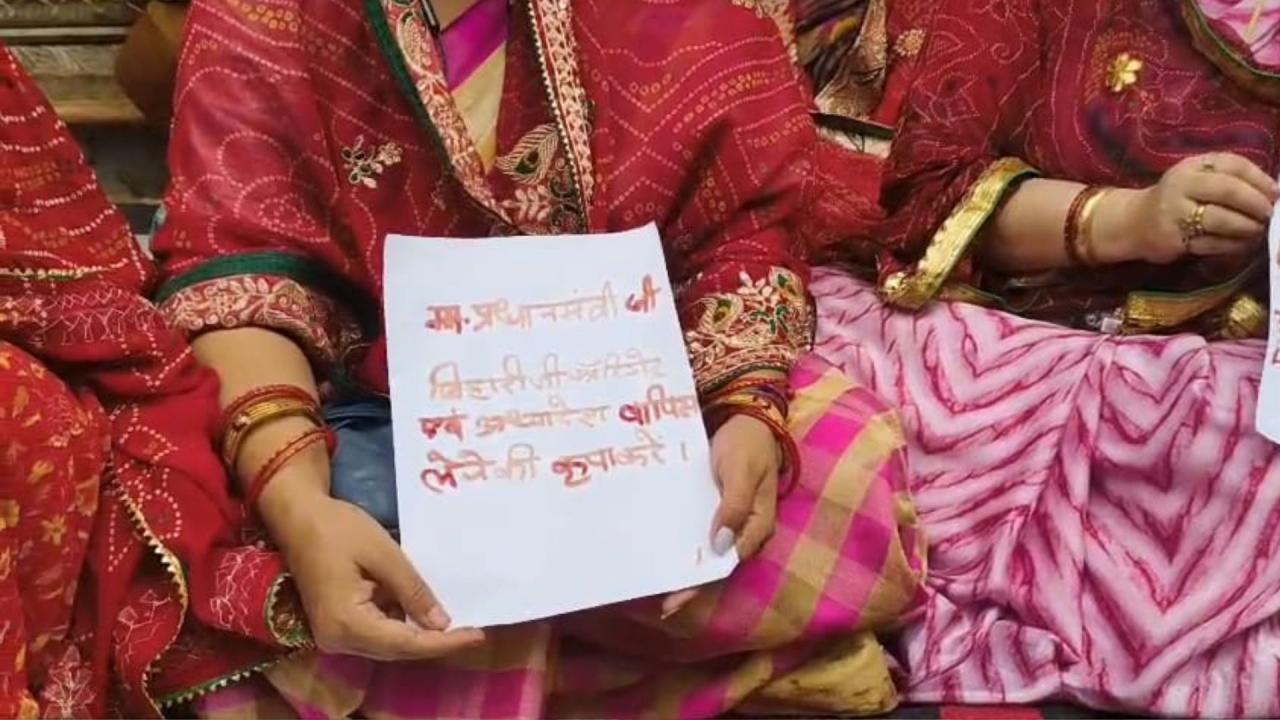 मा. प्रधानमंत्री जी
बिहारी जी कॉरीडोर
एवं अध्यादेश वापिस
लेने की कृपा करें।